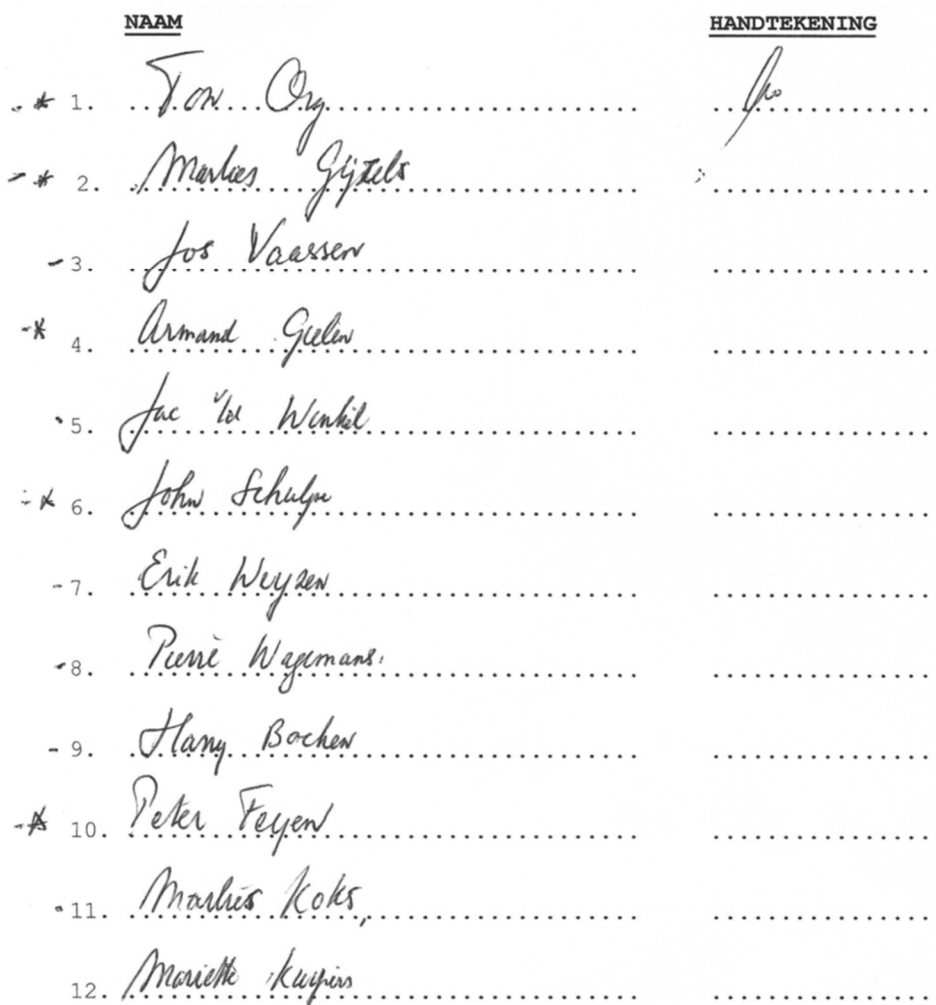 NAAM HANDTEKENING
* 1. Ton Org
* 2. Marlies Gijzels
3. Jos Vaassen
* 4. Armand Gielen
5. Jac v/d Winkel
* 6. John Schulpe
7. Erik Weyzen
8. Pierre Wagemans.
9. Harry Bochen
* 10. Peter Feyen
11. Marlies Koks,
12. Mariette Kuypers